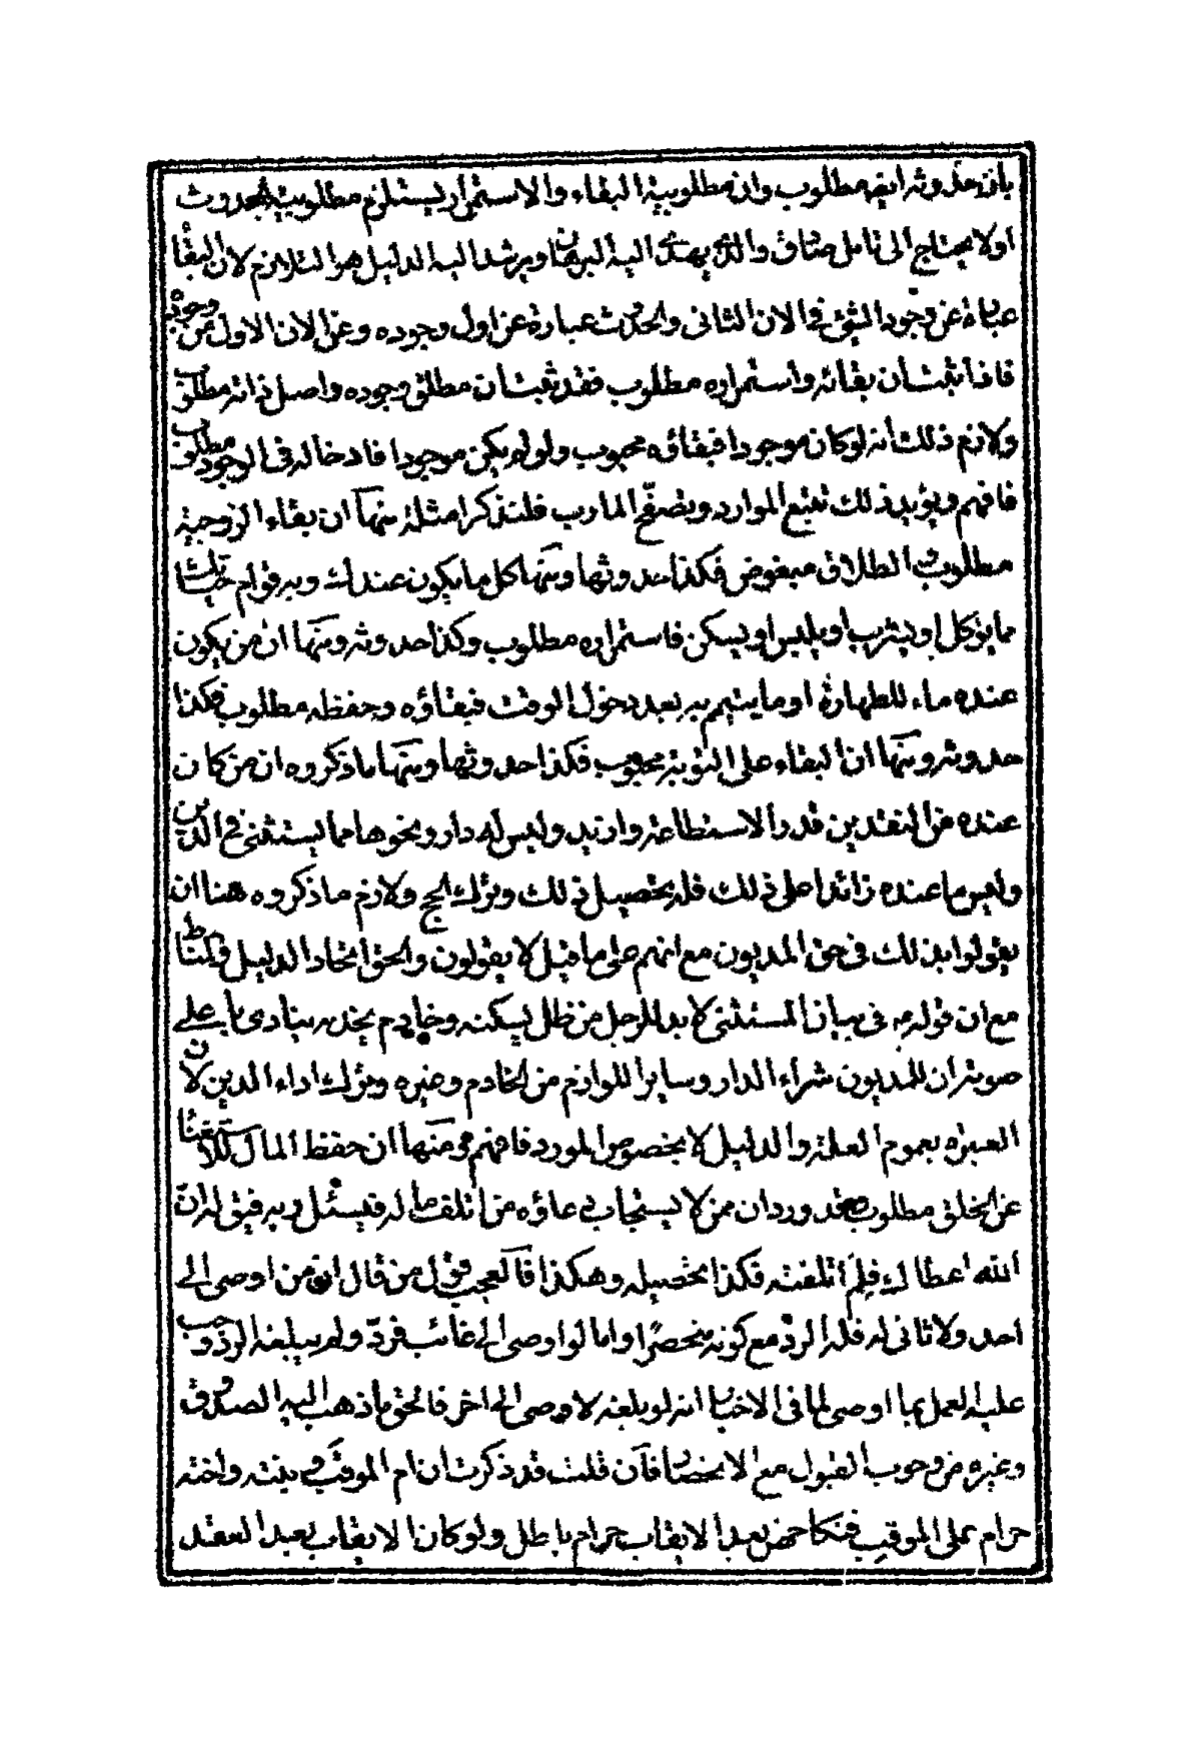 بان حدوثه ايضه مطلوب وان مطلوبية البقاء والاستمرار يستلزم مطلوبية الحدوث
اولا يحتاج الى تامل صادق والذي يهدى اليه البرهان ويرشد اليه الدليل هو التلازم لان البقا
عبارة عن وجود الشئ في الان الثانى والحدوث عبارة عن اول وجوده وعن الان الاول من وجوده
فاذا ثبت ان بقائه واستمراره مطلوب فقد ثبت ان مطلق وجوده واصل ذاته مطلق
ولازم ذلك انه لو كان موجودا فبقاؤه محبوب ولو لم يكن موجودا فادخاله فى الوجود مطلوب
فافهم ويؤيد ذلك تتبع الموارد وتصفّح المارب فلنذكر امثلة منها ان بقاء الزوجية
مطلوب والطلاق مبغوض فكذا حدوثها ومنها كل ما يكون عندك وبه قوام حياتك
مما يؤكل او يشرب او يلبس او يسكن فاستمراره مطلوب وكذا حدوثه ومنها ان من يكون
عنده ماء للطهارة او ما يتيمم به بعد دخول الوقت فبقاؤه وحفظه مطلوب فكذا
حدوثه ومنها ان البقاء على التوبة محبوب فكذا حدوثها ومنها ما ذكروه ان من كان
عنده من النقدين قدر الاستطاعة وازيد وليس له دار ونحوها مما يستثنى في الدين
وليس ما عنده زائدا على ذلك فله تحصيل ذلك وترك الحج ولازم ما ذكروه هنا ان
يقولوا بذلك فى حق المديون مع انهم على ما قيل لا يقولون والحق اتحاد الدليل
مع ان قوله ع فى بيان المستثنى لابد للرجل من ظل يسكنه وخادم يخدمه ينادى باعلى
صوته ان للمديون شراء الدار وساير اللوازم من الخادم وغيره وترك اداء الدين لان
العبرة بعموم العلة والدليل لا بخصوص المورد فافهم ومنها ان حفظ المال للاستغناء
عن الخلق مطلوب فقد ورد ان ممن لا يستجاب دعاؤه من اتلف ماله فيسئل ربه فيق له ان
الله اعطاك فلم اتلفته فكذا تحصيله وهكذا فالعجب قول من قال ان من اوصى الى
احد ولا ثانى له فله الرد مع كونه منحصرا واما لو اوصى الى غائب فردّ ولم يبلغه الرد وجب
عليه العمل بما اوصى لما فى الاخبار انه لو بلغه لاوصى الى اخر فالحق ما ذهب اليه الصدوق
وغيره من وجوب القبول مع الانحصار فان قلت قد ذكرت ان ام الموقب وبنته واخته
حرام على الموقب فنكاحهن بعد الايقاب حرام باطل ولو كان الايقاب بعد العقد